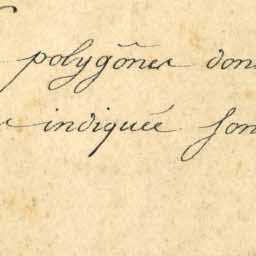 polygônes don
indiquée son